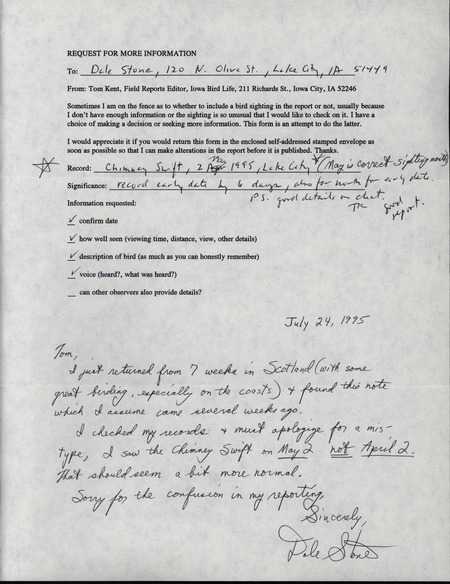 REQUEST FOR MORE INFORMATION
To: Dale Stone, 120 N. Olive St., Lake City, IA 51449
From: Tom Kent, Field Reports Editor, Iowa Bird Life, 211 Richards St., Iowa City, IA 52246
Sometimes I am on the fence as to whether to include a bird sighting in the report or not, usually because
I don't have enough information or the sighting is so unusual that I would like to check on it. I have a
choice of making a decision or seeking more information. This form is an attempt to do the latter.
I would appreciate it if you would return this form in the enclosed self-addressed stamped envelope as
soon as possible so that I can make alterations in the report before it is published. Thanks.
May
Record: Chimney Swift, 2 Apr 1995, Lake City (May is correct sighting month)
Significance: record early date by 6 days, also far north for early date
P.S. good details on chat.
good
report.
Information requested:
✓ confirm date
✓ how well seen (viewing time, distance, view, other details)
✓ description of bird (as much as you can honestly remember)
✓ voice (heard?, what was heard?)
_ can other observers also provide details?
July 24, 1995
Tom,
I just returned from 7 weeks in Scotland (with some
great birding, especially on the coasts) & found this note
which I assume came several weeks ago.
I checked my records & must apologize for a mis-
type, I saw the Chimney Swift on May 2 not April 2.
That should seem a bit more normal.
Sorry for the confusion in my reporting.
Sincerely,
Dale Stone